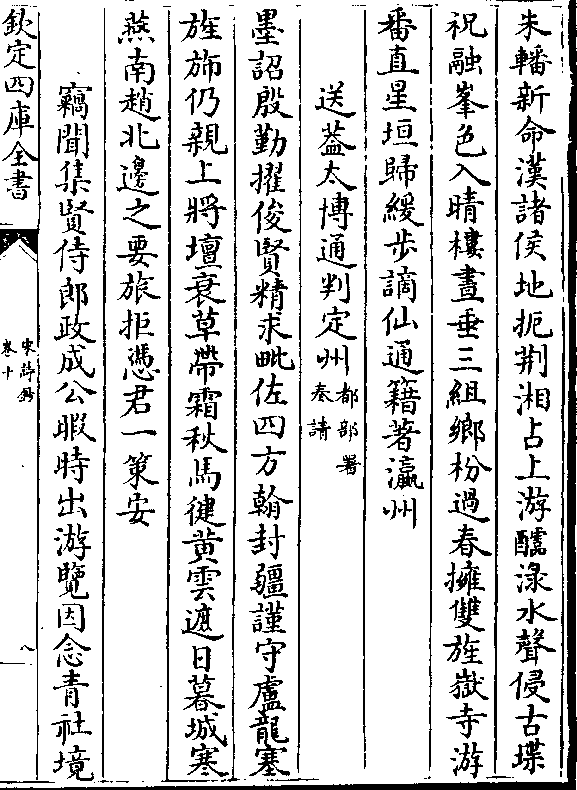 朱轓新命漢諸侯地扼荆湘占上游醽渌水聲侵古堞
祝融峯色入晴樓晝垂三組鄉枌過春擁雙旌嶽寺游
番直星垣歸緩步謫仙通籍著瀛州
送葢太博通判定州都部署奏請
墨詔殷勤擢俊賢精求毗佐四方翰封疆謹守盧龍塞
旌斾仍親上將壇衰草帶霜秋馬健黄雲遮日暮城寒
燕南趙北邊之要旅拒憑君一策安
竊聞集賢侍郎政成公暇時出游覽因念青社境
欽定四庫全書
宋詩鈔
卷十
八